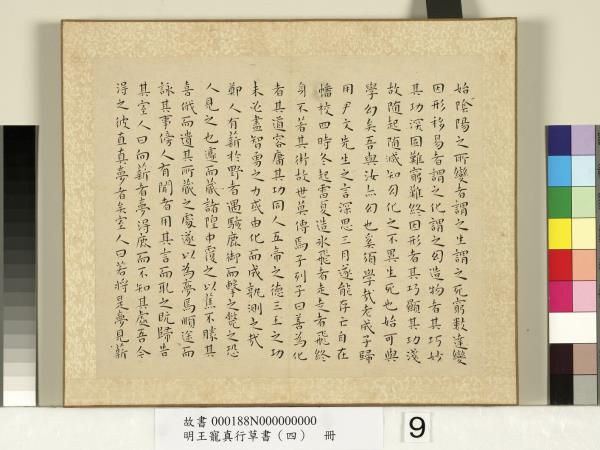 始陰陽之所變者謂之生謂之死窮數達變
因形移易者謂之化謂之幻造物者其巧妙
其功深固難窮難終因形者其巧顯其功淺
故隨起隨滅知幻化之不異生死也始可與
學幻矣吾與汝亦幻也奚須學哉老成子歸
用尹文先生之言深思三月遂能存亡自在
幡校四時冬起雷夏造冰飛者走走者飛終
身不著其術故世莫傳焉子列子曰善為化
者其道容庸其功同人五帝之德三王之功
未必盡智勇之力或由化而成孰測之哉
鄭人有薪於野者遇駭鹿御而擊之斃之恐
人見之也遽而藏諸隍中覆之以蕉不勝其
喜俄而遺其所藏之處遂以為夢焉順途而
詠其事傍人有聞者用其言而取之既歸告
其室人曰向薪者夢得鹿而不知其處吾今
得之彼直真夢者矣室人曰若將是夢見薪
故書 000188N000000000
明王寵真行草書（四） 冊
9